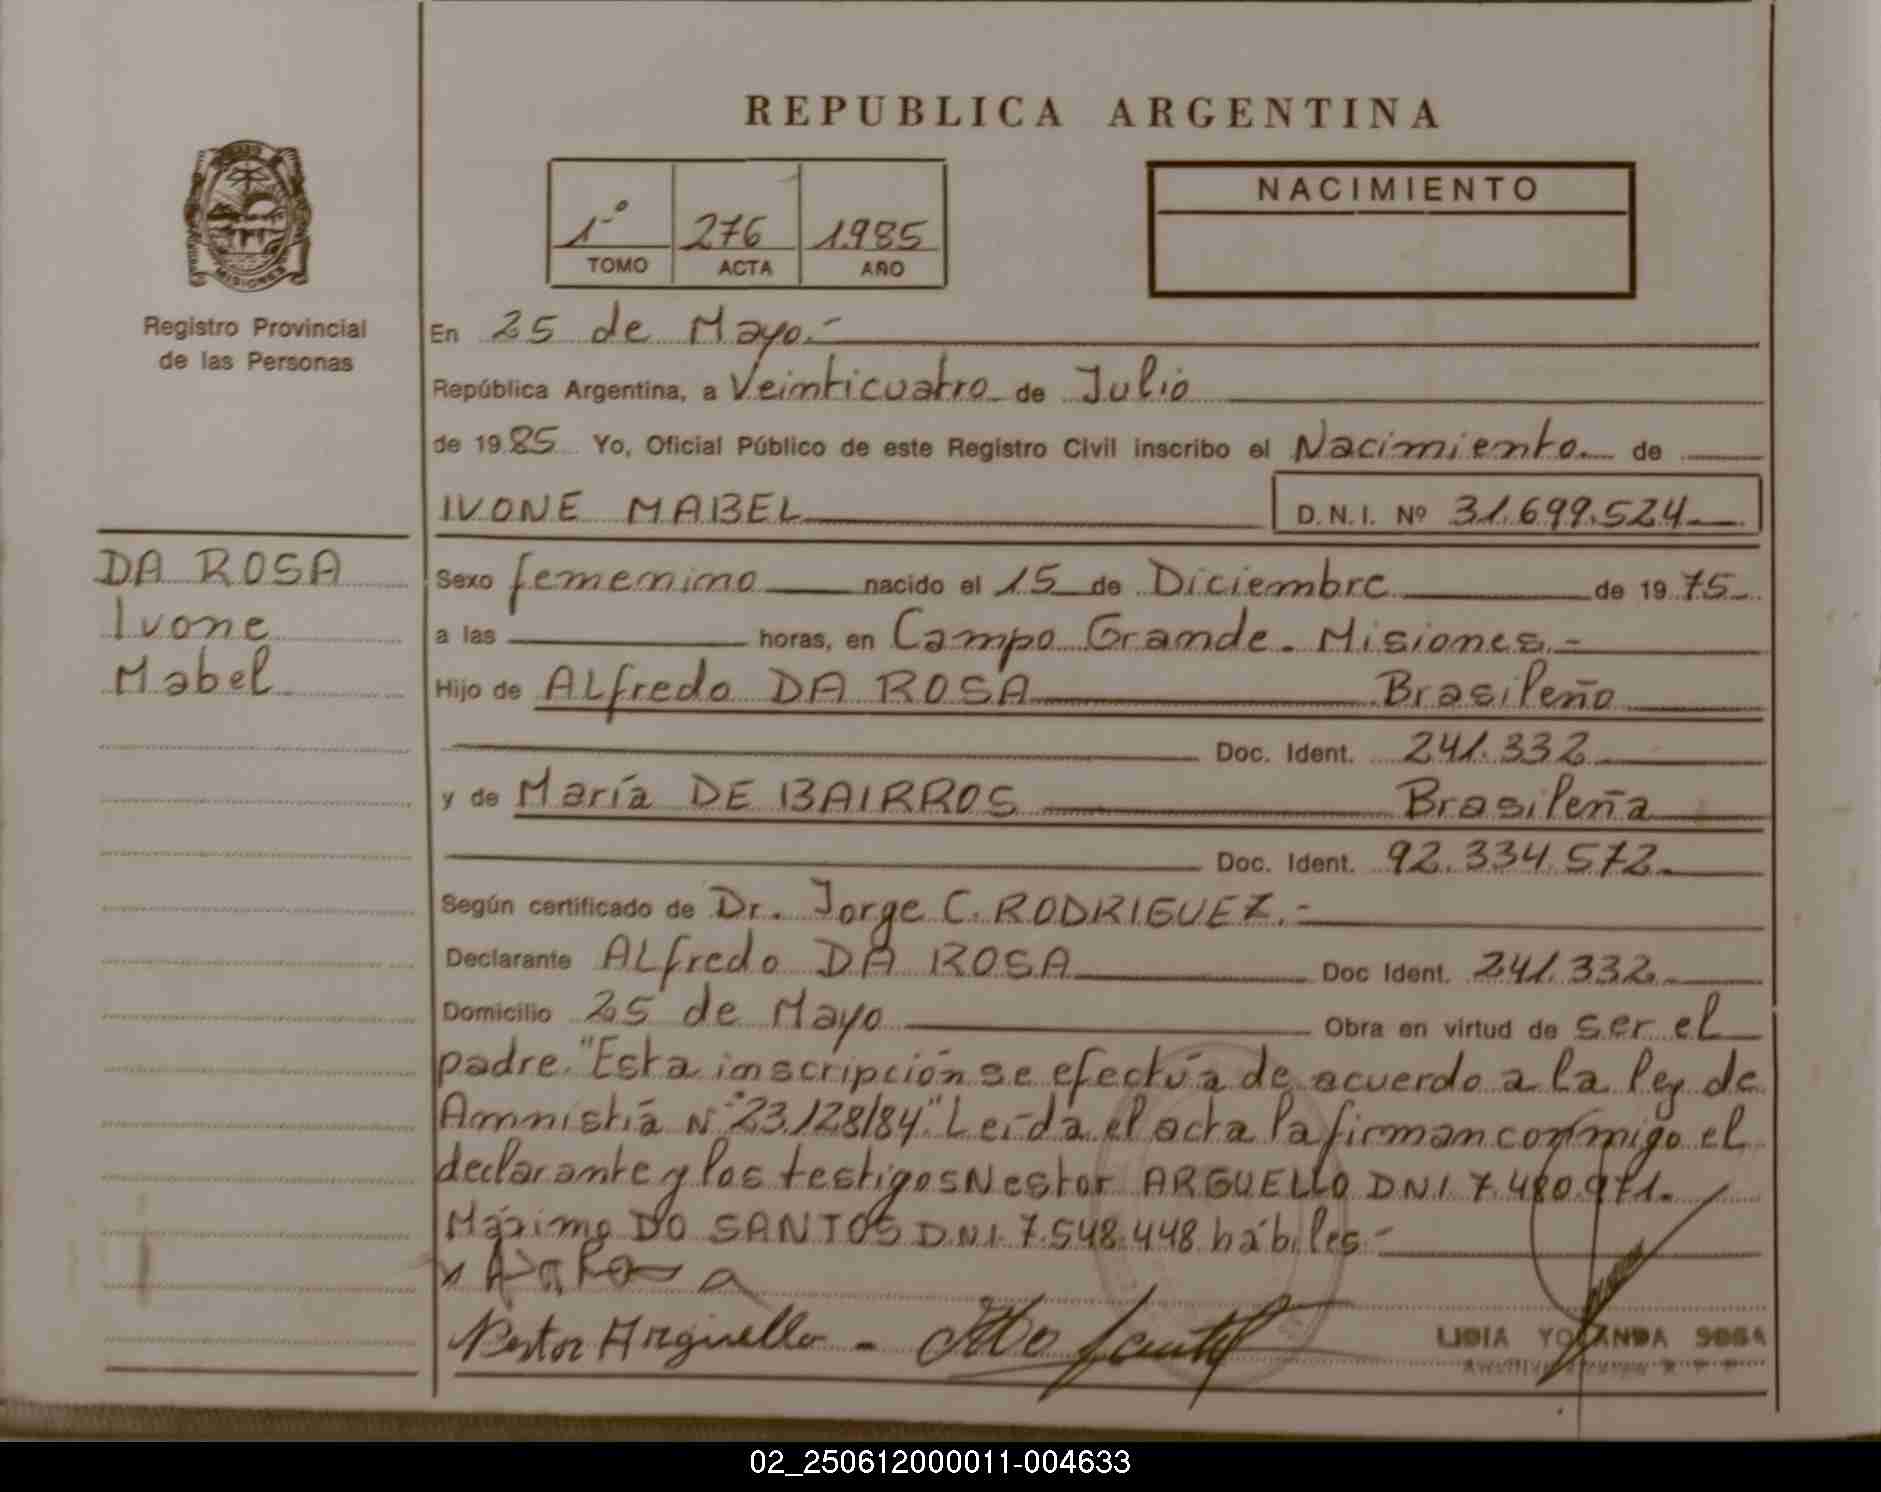 REPUBLICA ARGENTINA
MISIONES
Registro Provincial
de las Personas
1º 276 1985
TOMO ACTA AÑO
NACIMIENTO
En 25 de Mayo.-
República Argentina, a Veinticuatro de Julio
de 1985 Yo, Oficial Público de este Registro Civil inscribo el Nacimiento de
IVONE MABEL D.N.I. Nº 31.699.524
DA ROSA
Ivone
Mabel
Sexo femenino nacido el 15 de Diciembre de 1975
a las horas, en Campo Grande. Misiones.-
Hijo de ALfredo DA ROSA Brasileño
Doc. Ident. 241.332
y de María DE BAIRROS Brasileña
Doc. Ident. 92.334.572
Según certificado de Dr. Jorge C. RODRIGUEZ.-
Declarante ALfredo DA ROSA Doc Ident. 241.332
Domicilio 25 de Mayo Obra en virtud de ser el
padre. "Esta inscripción se efectúa de acuerdo a la ley de
Amnistiá Nº 23.128/84". Leída el acta la firman conmigo el
declarante y los testigos Nestor ARGUELLO DNI 7.480.971.
Máximo DO SANTOS DNI 7.548.448 hábiles.-
Nestor Arguello -
LIDIA YOLANDA SOSA
02_250612000011-004633